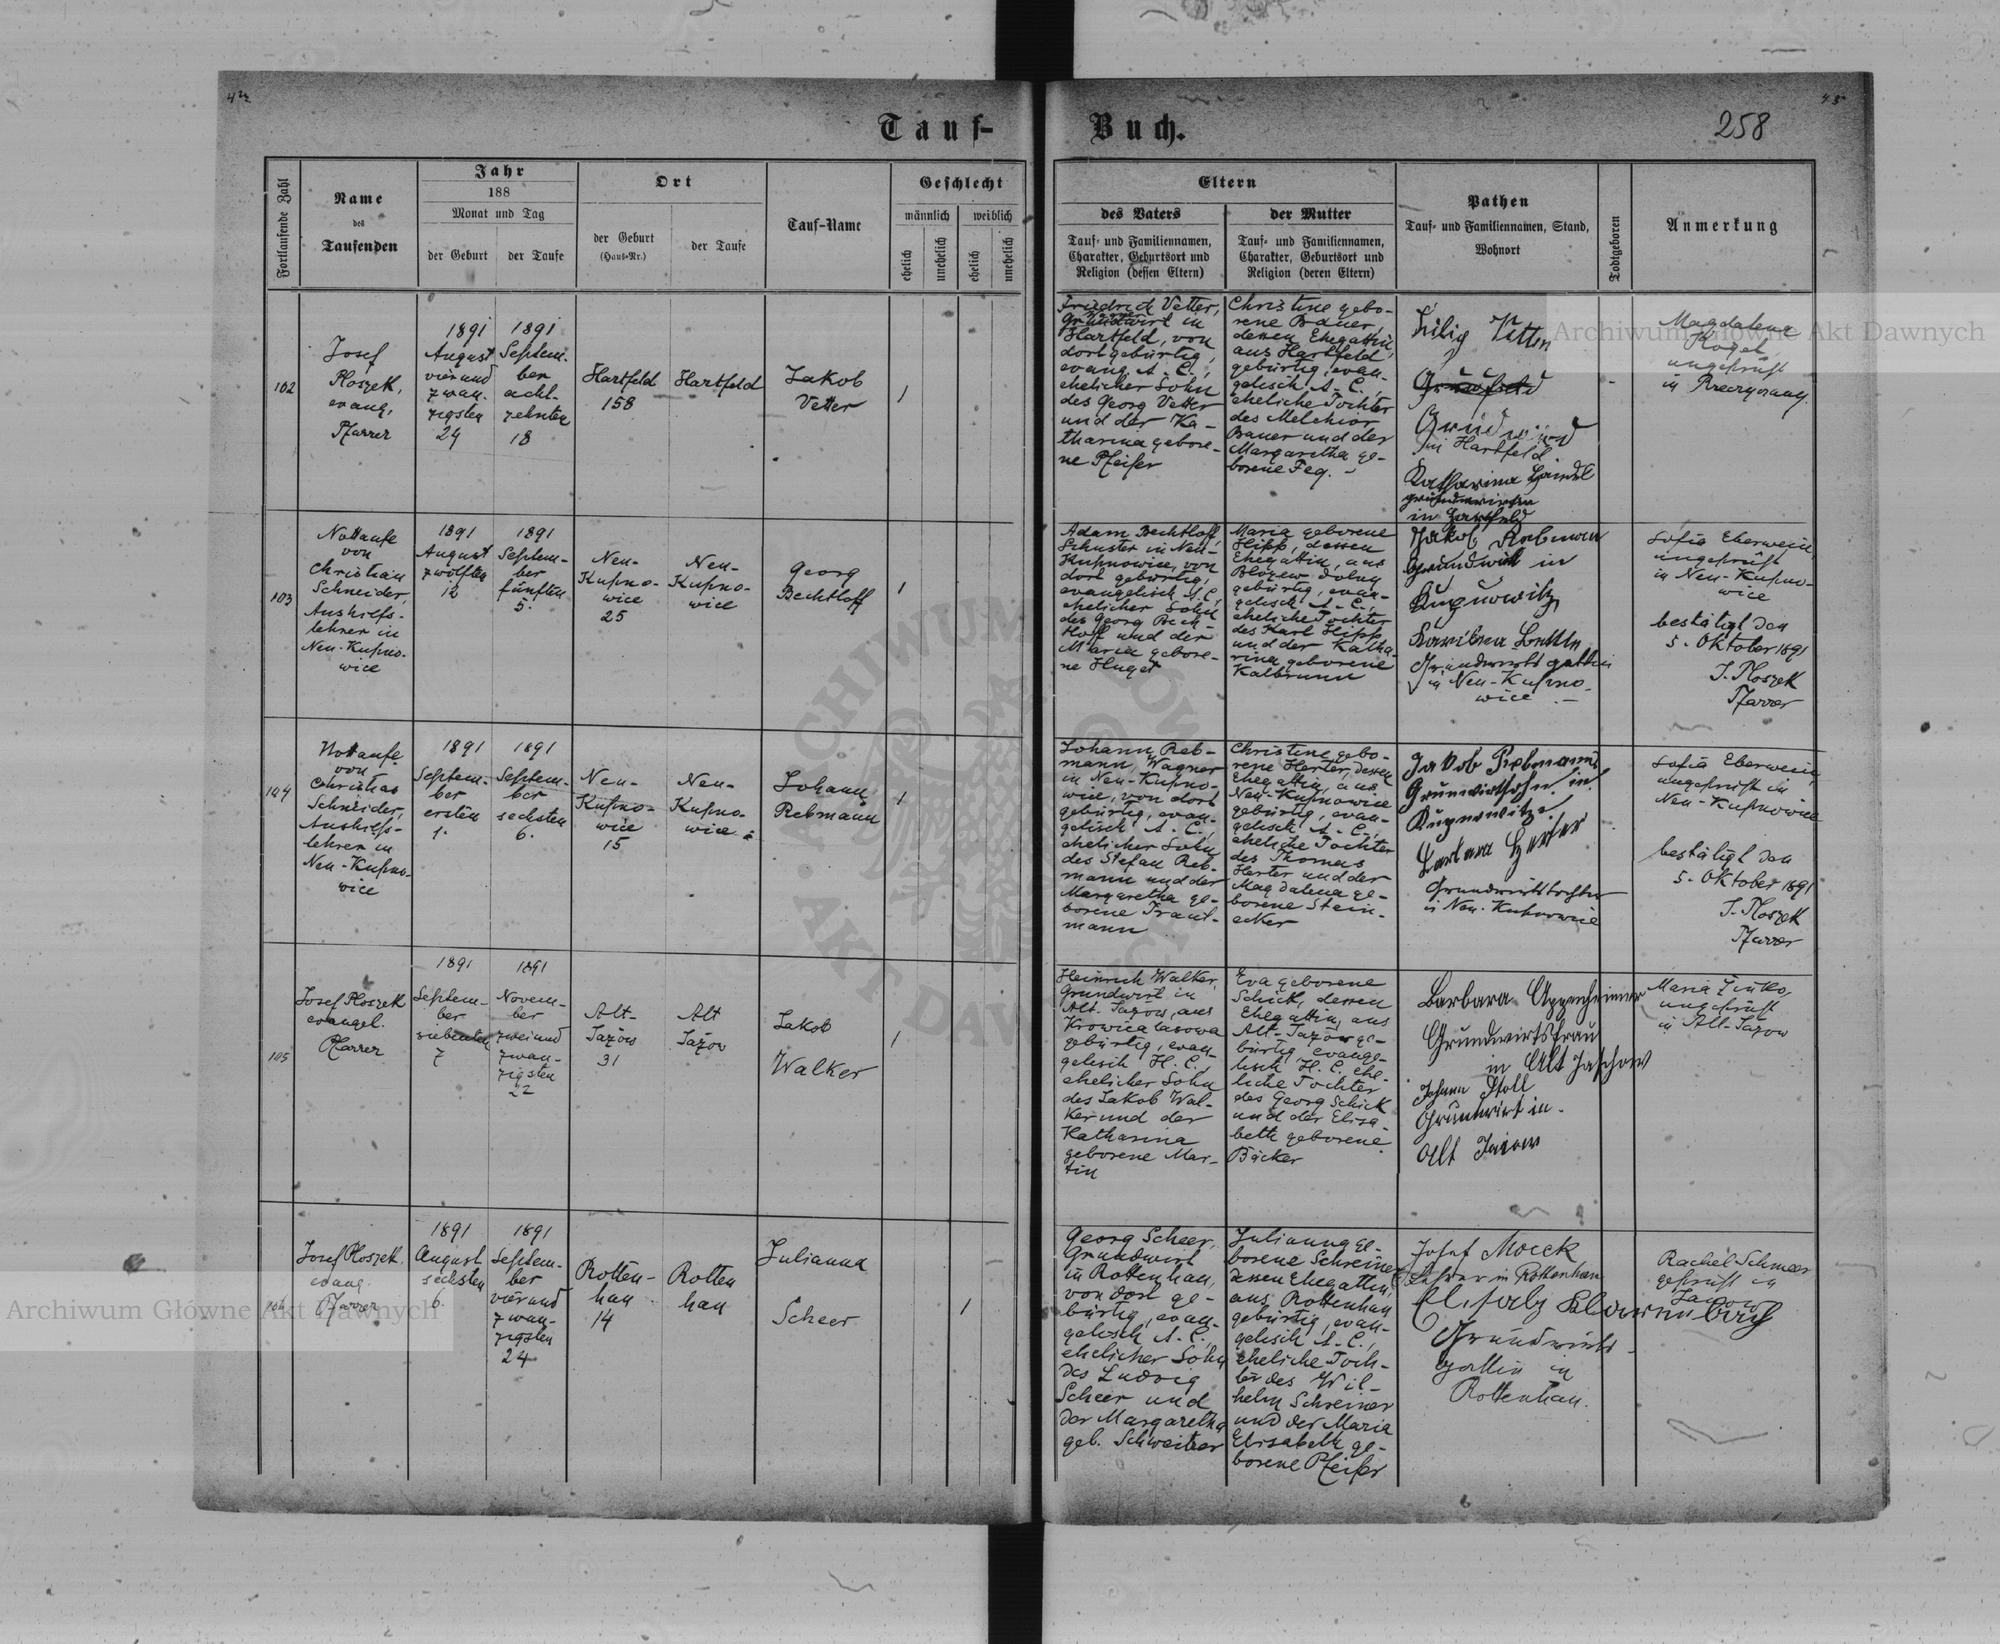 Tauf-
Buch.
258
Fortlaufende Zahl
Name
des
Taufenden
Jahr
188
Monat und Tag
der Geburt
der Taufe
Ort
der Geburt
(Haus-Nr.)
der Taufe
Tauf-Name
Geschlecht
männlich
weiblich
ehelich
unehelich
ehelich
unehelich
Eltern
des Vaters
Tauf- und Familiennamen,
Charakter, Geburtsort und
Religion (dessen Eltern)
der Mutter
Tauf- und Familiennamen,
Charakter, Geburtsort und
Religion (deren Eltern)
Pathen
Tauf- und Familiennamen, Stand,
Wohnort
Todtgeboren
Anmerkung
102
Josef
Ploszek,
evang.
Pfarrer
1891
August
vierund
zwan-
zigsten
24
1891
Septem-
ber
acht-
zehnten
18
Hartfeld
158
Hartfeld
Jakob
Vetter
1
Friedrich Vetter,
Grundwirt in
Hartfeld, von
dort gebürtig,
evang. A. C.,
ehelicher Sohn
des Georg Vetter
und der Ka-
tharina gebore-
ne Pfeifer
Christine gebo-
rene Bauer,
dessen Ehegattin,
aus Hartfeld
gebürtig, evan-
gelisch A. C.
eheliche Tochter
des Melchior
Bauer und der
Margaretha ge-
borene Feg.
in Hartfeld
Katharina
in Hartfeld
Magdalena
Kogel
ungeprüft
in
103
Nottaufe
von
Christian
Schneider,
Aushilfs-
lehrer in
Neu-Kupno-
wice
1891
August
zwölften
12
1891
Septem-
ber
fünften
5.
Neu-
Kupno-
wice
25
Neu-
Kupno-
wice
Georg
Bechtloff
1
Adam Bechtloff,
Schuster in Neu-
Kupnowice, von
dort gebürtig,
evangelisch A. C.,
ehelicher Sohn
des Georg Bech-
tloff und der
Maria gebore-
ne Huget
Maria geborene
Hipp, dessen
Ehegattin, aus
gebürtig, evan-
gelisch A. C.,
eheliche Tochter
des Karl Hipp
und der Katha-
rina geborene
Kalbrunn
Jakob Rebman
Grundwirt in
Kupnowitz,
Grundwirtsgattin
in Neu-Kupno-
wice
Sofia Eberwein
ungeprüft
in Neu-Kupno-
wice
bestätigt den
5. Oktober 1891
J. Ploszek
Pfarrer
104
Nottaufe
von
Christian
Schneider,
Aushilfs-
lehrer in
Neu-Kupno-
wice
1891
Septem-
ber
ersten
1.
1891
Septem-
ber
sechsten
6.
Neu-
Kupno-
wice
15
Neu-
Kupno-
wice
Johann
Rebmann
1
Johann Reb-
mann, Wagner
in Neu-Kupno-
wice, von dort
gebürtig, evan-
gelisch A. C.,
ehelicher Sohn
des Stefan Reb-
mann und der
Margaretha ge-
borene Traut-
mann
Christine gebo-
rene Herter, dessen
Ehegattin, aus
Neu-Kupnowice
gebürtig, evan-
gelisch A. C.,
eheliche Tochter
des Thomas
Herter und der
Magdalena ge-
borene Stein-
ecker
Jakob Rebmann
Grunwirthsohn in
Kupnowitze
Barbara Herter
Grundwirtstochter
in Neu-Kupnowice
Sofia Eberwein,
ungeprüft in
Neu-Kupnowice
bestätigt den
5. Oktober 1891
J. Ploszek
Pfarrer
105
Josef Ploszek
evangel.
Pfarrer
1891
Septem-
ber
siebenten
7
1891
Novem-
ber
zweiund
zwan-
zigsten
22
Alt-
Jazów
31
Alt
Jazow
Jakob
Walker
1
Heinrich Walker,
Grundwirt in
Alt-Jazow, aus
Krowica lasowa
gebürtig, evan-
gelisch H. C.,
ehelicher Sohn
des Jakob Wal-
ker und der
Katharina
geborene Mar-
tin
Eva geborene
Schick, dessen
Ehegattin, aus
Alt-Jazów ge-
bürtig, evange-
lisch H. C. ehe-
liche Tochter
des Georg Schick
und der Elisa-
beth geborene
Bäcker
Barbara Oppenheimer
Grundwirtsfrau
in Alt Jaschow
Johann Stoll
Grundwirt in
Alt Jazow
Maria
ungeprüft
in Alt-Jazow
106
Josef Ploszek
evang.
Pfarrer
1891
August
sechsten
6.
1891
Septem-
ber
vierund
zwan-
zigsten
24
Rotten-
han
14
Rotten
han
Julianna
Scheer
1
Georg Scheer,
Grundwirt
in Rottenhan,
von dort ge-
bürtig, evan-
gelisch A. C.,
ehelicher Sohn
des Ludwig
Scheer und
der Margaretha
geb. Schweitzer
Julianna ge-
borene Schreiner
dessen Ehegattin,
aus Rottenhan
gebürtig, evan-
gelisch A. C.,
eheliche Toch-
ter des Wil-
helm Schreiner
und der Maria
Elisabeth ge-
borene Pfeifer
Josef Mocek
Lehrer in Rottenhan
Grundwirts-
gattin in
Rottenhan.
Rachel Schmeer
geprüft in
Jazow
Archiwum Główne Akt Dawnych
Archiwum Główne Akt Dawnych